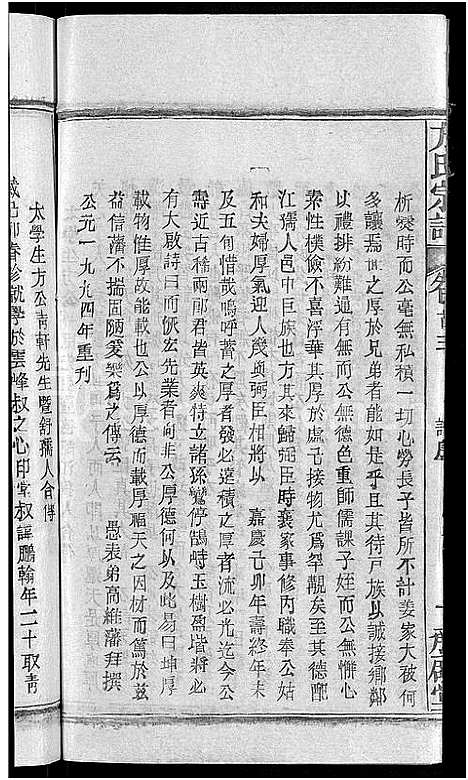 方氏宗譜
卷首三
析爨時而公毫無私積一切心勞長子皆所不計姜家大被何
多讓焉世之厚於兄弟者能如是乎且其待戶族以誠接鄉鄰
以禮排紛難而公無德色重師儒課子姪而公無懈心
素性樸儉不喜浮華其厚於處己接物尤爲罕觀矣至其德配
江孺人邑中巨族也其來歸弼臣時襄家事修內職奉公姑
和夫婦厚氣迎人幾與弼臣相將以 嘉慶己卯年壽終年未
及五旬惜哉嗚呼蓄之厚者發必遠積之厚者流必光迄今公
壽近古稀兩郎君皆英爽特立諸孫鸞停鵠峙玉樹盈堦將必
有大啟詩曰而恢宏先業者向非公厚德何以及此易曰坤厚
載物惟厚故能載也公以厚德而載厚福天之因材而篤於茲
益信藩不揣固陋爰樂爲之傳云 愚表弟高維藩拜撰
公元一九九四年重刊
太學生方公靑軒先生暨舒孺人合傳
歲己卯春診就學於雲峰叔之心印堂叔諱鵬翰年二十取靑